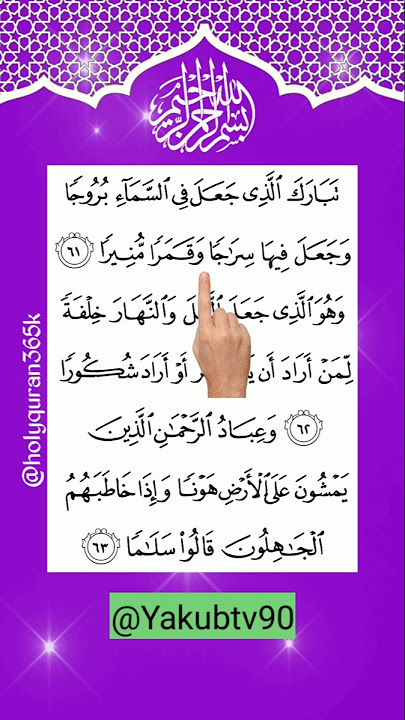 بسم الله الرحمن الرحيم
تَبَارَكَ ٱلَّذِى جَعَلَ فِى ٱلسَّمَآءِ بُرُوجًا
وَجَعَلَ فِيهَا سِرَٰجًا وَقَمَرًا مُّنِيرًا ٦١
وَهُوَ ٱلَّذِى جَعَلَ وَٱلنَّهَارَ خِلْفَةً
لِّمَنْ أَرَادَ أَن أَوْ أَرَادَ شُكُورًا
٦٢ وَعِبَادُ ٱلرَّحْمَٰنِ ٱلَّذِينَ
يَمْشُونَ عَلَى ٱلْأَرْضِ هَوْنًا وَإِذَا خَاطَبَهُمُ
ٱلْجَٰهِلُونَ قَالُوا۟ سَلَٰمًا ٦٣
@holyquran365k
@Yakubtv90